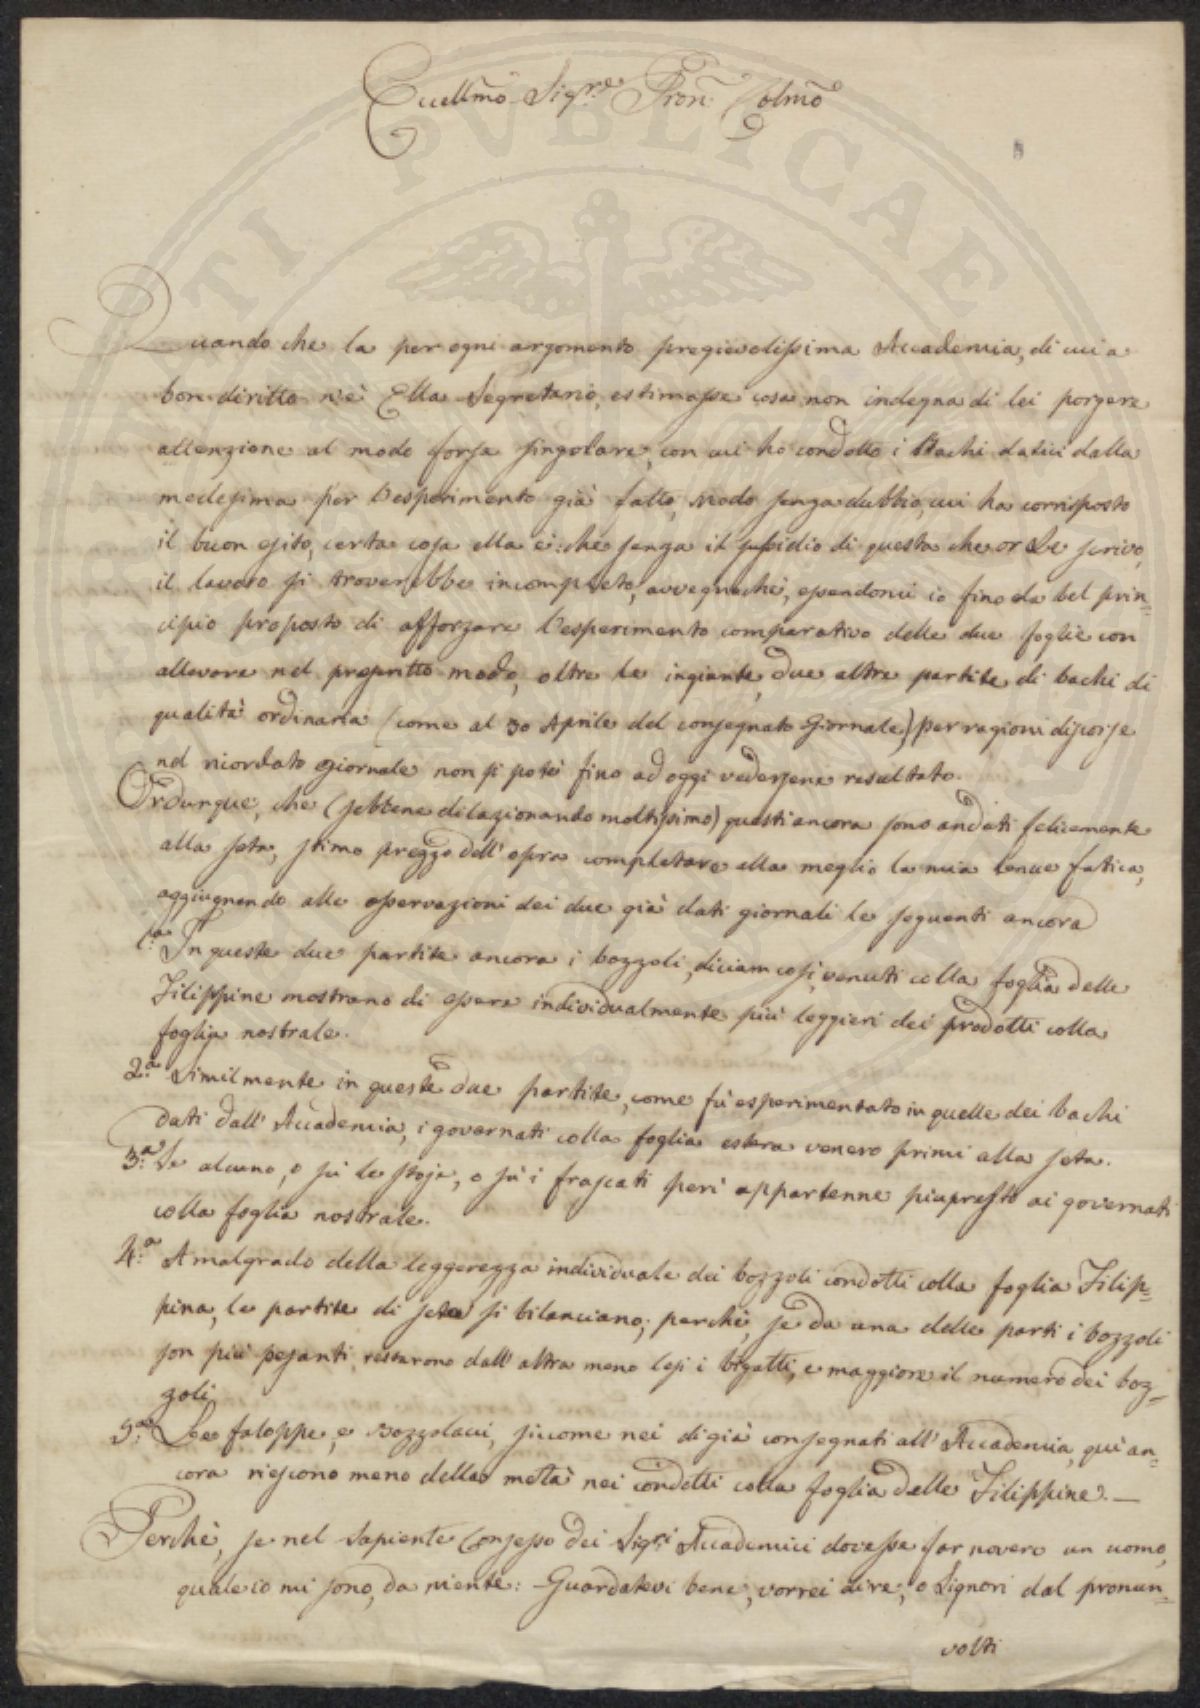 Eccellmo Sigre Pron: Colmo
Quando che la per ogni argomento pregievolissima Accademia, di cui a
bon diritto n'è Ella Segretario, estimasse cosa non indegna di lei porgere
attenzione al modo forse singolare, con cui ho condotto i Bachi datici dalla
medesima per l'esperimento già fatto, modo senza dubbio, cui ha corrisposto
il buon esito, certa cosa ella è: che senza il sussidio di questa che or Le scrivo,
il lavoro si troverebbe incompleto, avvegnachè, essendomi io fino da bel prin=
cipio proposto di afforzare l'esperimento comparativo delle due foglie con
allevare nel prescritto modo, oltre le ingiunte, due altre partite di bachi di
qualità ordinaria (come al 30 Aprile del consegnato Giornale) per ragioni discorse
nel ricordato giornale non si potè fino ad oggi vedersene resultato.
Ordunque, che (sebbene dilazionando moltissimo) questi ancora sono andati felicemente
alla seta, stimo prezzo dell'opra completare alla meglio la mia tenue fatica,
aggiugnendo alle osservazioni dei due già dati giornali le seguenti ancora
1.a In queste due partite ancora i bozzoli, diciam così, venuti colla foglia delle
Filippine mostrano di essere individualmente più leggieri dei prodotti colla
foglia nostrale.
2.a Similmente in queste due partite, come fù esperimentato in quelle dei bachi
dati dall'Accademia, i governati colla foglia estera venero primi alla seta.
3.a Se alcuno, o sù le stoje, o sù i frascati perì appartenne piupresto ai governati
colla foglia nostrale.
4.a Amalgrado della leggerezza individuale dei bozzoli condotti colla foglia Filip=
pina, le partite di seta si bilanciano; perchè, se da una delle parti i bozzoli
son più pesanti, restarono dall'altra meno lesi i bigatti, e maggiore il numero dei boz=
zoli.
5.a Le faloppe, e Bozzolacci, siccome nei digià consegnati all'Accademia, quì an=
cora riescono meno della metà nei condotti colla foglia delle Filippine. —
Perchè, se nel sapiente Consesso dei Sigri Accademici dovesse far novero un uomo,
quale io mi sono, da niente: Guardatevi bene, vorrei dire, o Signori dal pronun=
volti